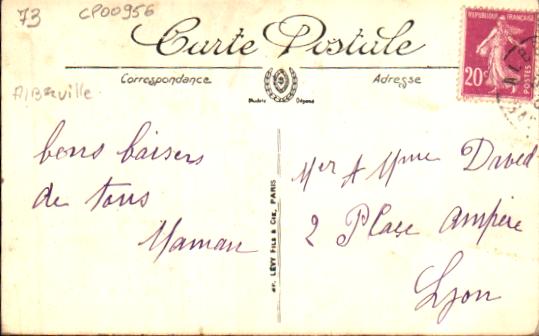 73 CP00956
Carte Postale
RÉPUBLIQUE FRANÇAISE
20c
POSTES
Correspondance
Adresse
Modèle Déposé
Albertville
bons baisers
de tous
Maman
LÉVY FILS & Cie, PARIS
Mer & Mme
2 Place Ampère
Lyon